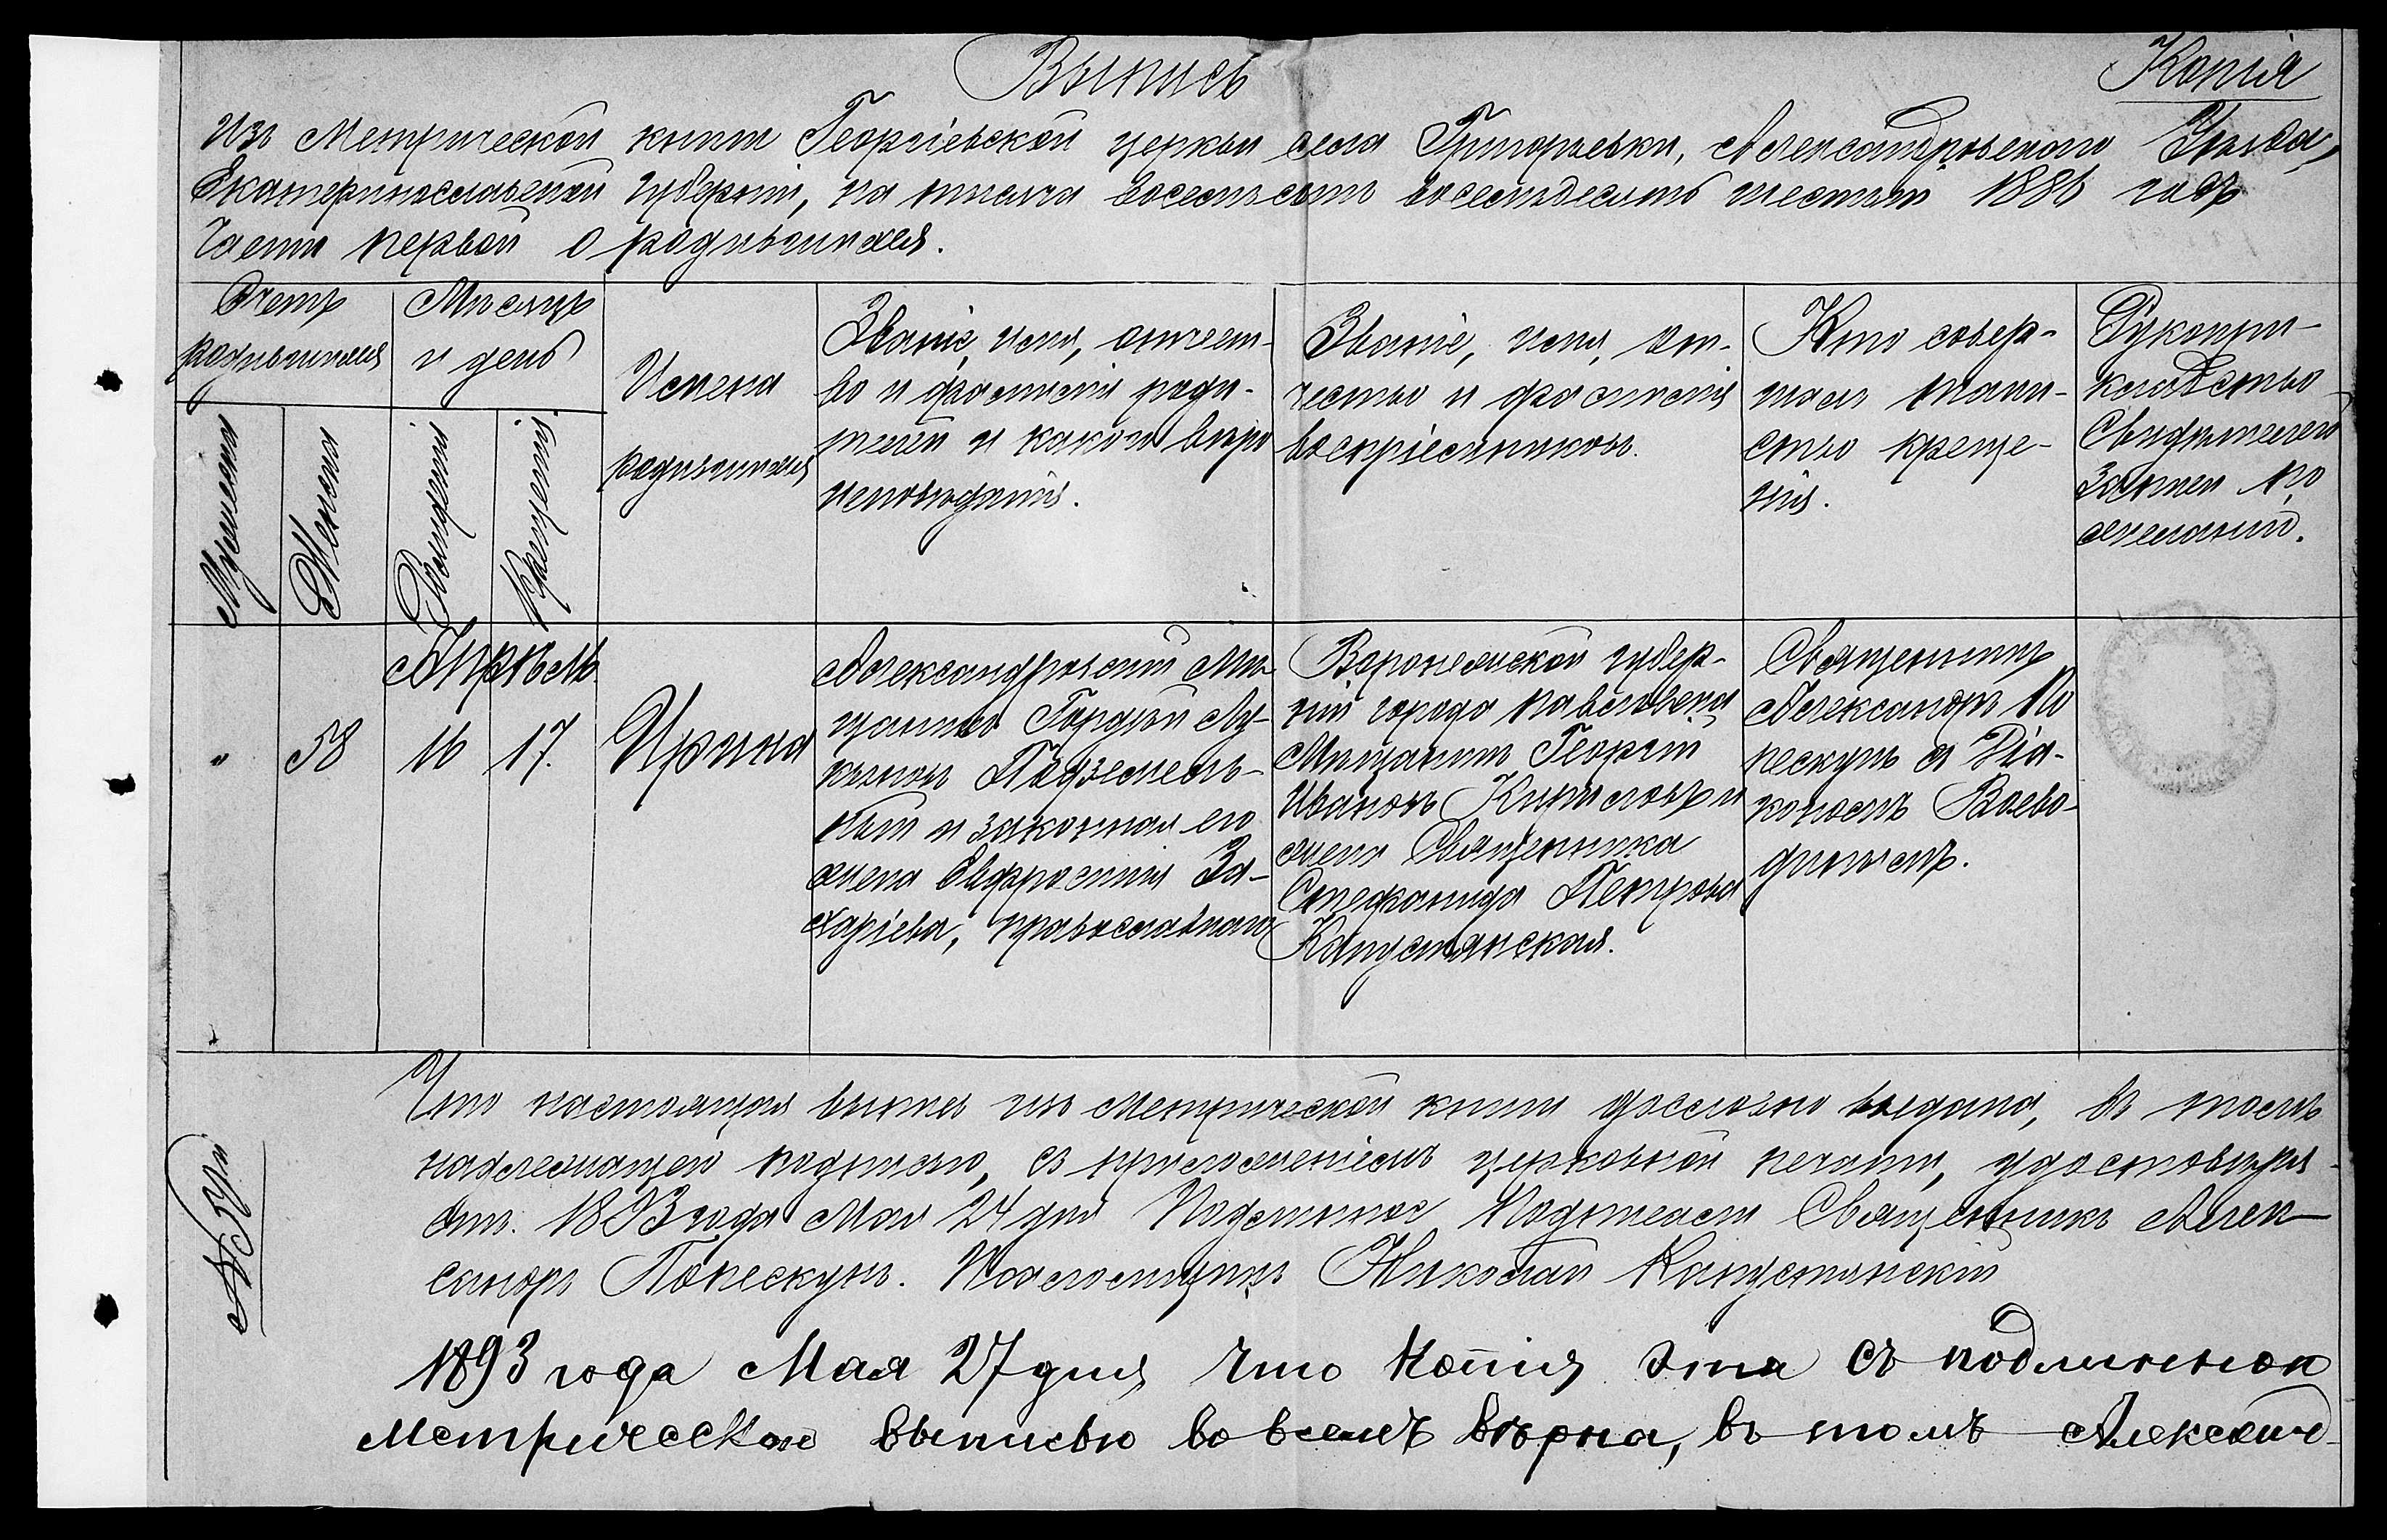 Выпись
Копія
Изъ Метрической книги Георгіевской церкви села Григорьевки, Александровскаго Уѣзда,
Екатеринославской губерніи, на тысяча восемьсотъ восемьдесятъ шестый 1886 годъ
Части первой о родившихся.
Счетъ
родившихся
Мѣсяцъ
и день
Мужеска
Женска
Рожденія
Крещенія
Имена
родившихся
Званіе, имя, отчест-
во и фамилія роди-
телей и какого вѣро
исповѣданія.
Званіе, имя, от-
чество и фамилія
воспріемниковъ.
Кто совер-
шалъ таин-
ство креще-
нія.
Рукопри-
кладство
Свидѣтелей
записи по
желанію.
Апрѣль
"
58
16
17.
Ирина
Александровскій Мѣ-
щанинъ Гордѣй Лу-
кьяновъ Подземель-
ный и законная его
жена Евфросинія За-
харіева, православнаго
Воронежской губер-
ніи города Павловска
Мѣщанинъ Георгій
Ивановъ Кирилловъ и
жена Священника
Стефанида Петрова
Капустянская.
Священникъ
Александръ По
пескулъ съ Діа-
кономъ Воево-
диномъ.
Что настоящая выпись изъ Метрической книги дословно выдана, въ томъ
надлежащею подписью, съ приложеніемъ церковной печати, удостовѣря-
етъ. 1893 года Мая 24 дня Подлинное Подписали Священникъ Алек-
сандръ Попескулъ. Псаломщикъ Николай Капустянскій
№ 57й
1893 года Мая 27 дня что копія эта съ подлинною
Метрическою выписью во всемъ вѣрна, въ томъ Александ-